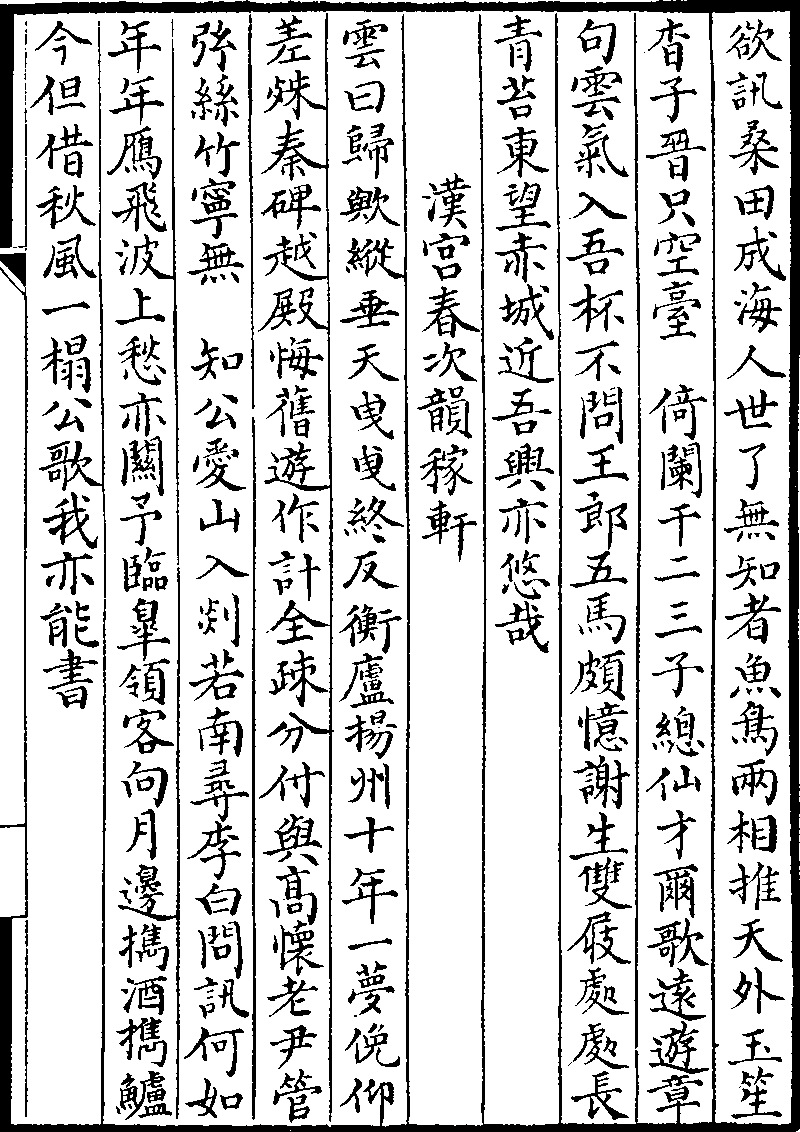 欲訊桑田成海人世了無知者魚鳥兩相推天外玉笙
杳子晉只空臺　倚闌干二三子總仙才爾歌遠遊章
句雲氣入吾杯不問王郎五馬頗憶謝生雙屐處處長
青苔東望赤城近吾興亦悠哉
漢宮春次韻稼軒
雲曰歸歟縱垂天曳曳終反衡廬揚州十年一夢俛仰
差殊秦碑越殿悔舊遊作計全疎分付與高懷老尹管
弦絲竹寧無　知公愛山入剡若南尋李白問訊何如
年年鴈飛波上愁亦關予臨皐領客向月邊擕酒擕鱸
今但借秋風一榻公歌我亦能書